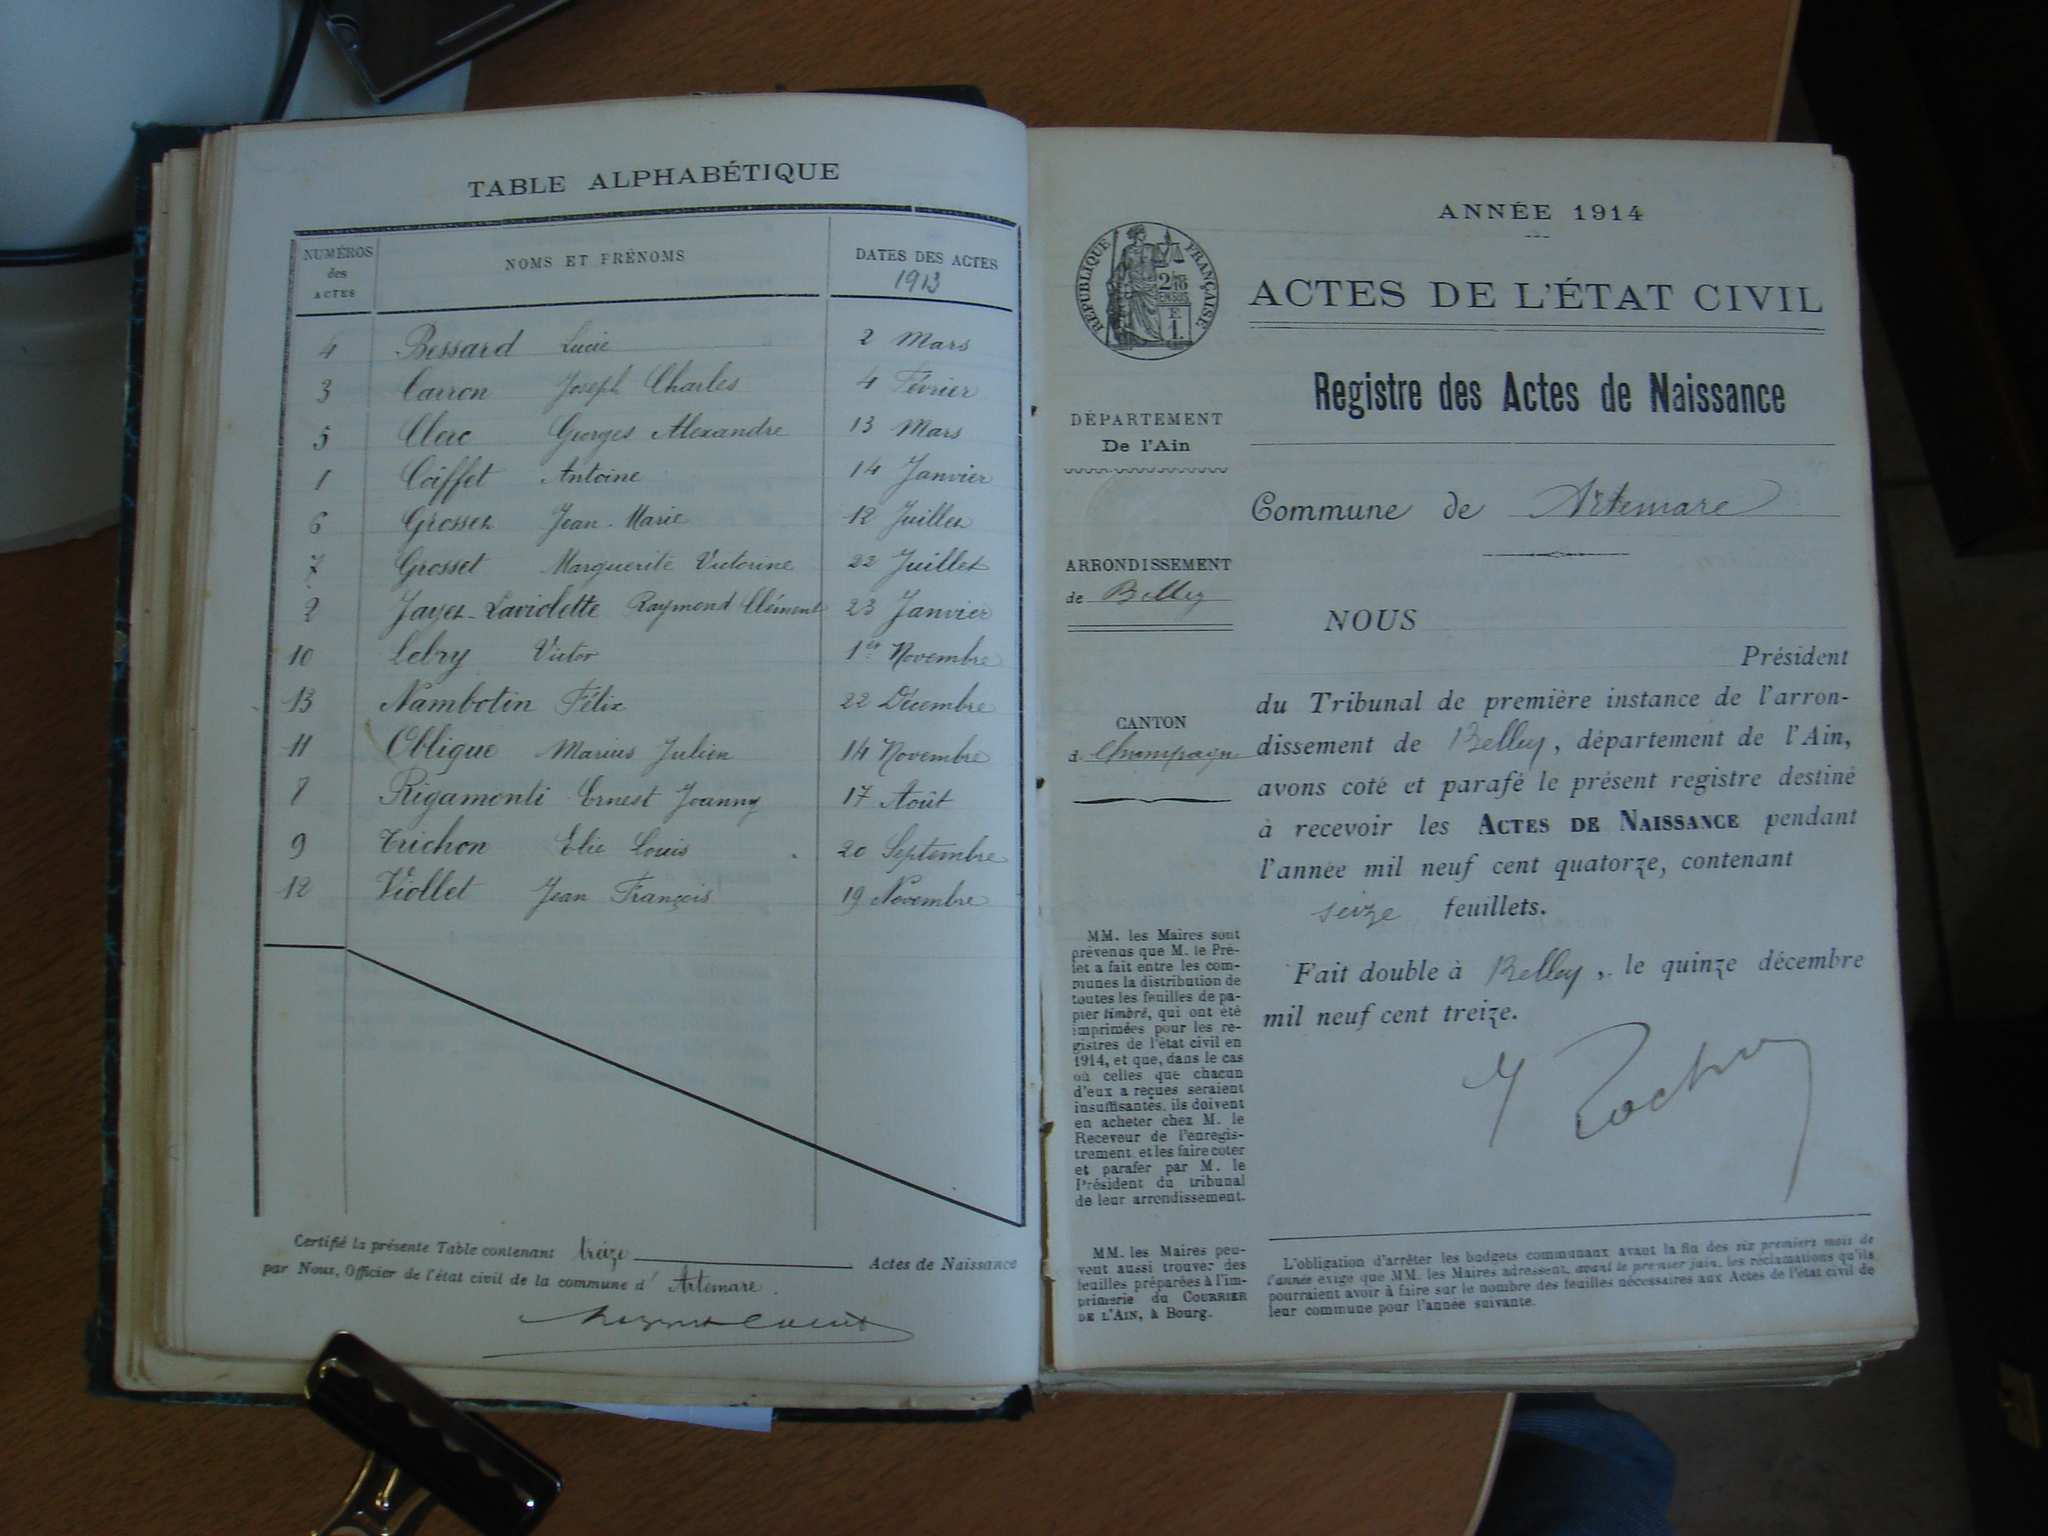 TABLE ALPHABÉTIQUE
NUMÉROS des ACTES
NOMS ET PRÉNOMS
DATES DES ACTES
1913
4 Bessard Lucie 2 Mars
3 Carron Joseph Charles 4 Février
5 Clerc Georges Alexandre 13 Mars
1 Coiffet Antoine 14 Janvier
6 Grosset Jean-Marie 12 Juillet
7 Grosset Marguerite Victorine 22 Juillet
2 Jayet-Laviolette Raymond Clément 23 Janvier
10 Lebry Victor 1er Novembre
13 Nambotin Félix 22 Décembre
11 Oblique Marius Julien 14 Novembre
8 Rigamonti Ernest Joanny 17 Août
9 Trichon Elie Louis 20 Septembre
12 Viollet Jean François 19 Novembre
Certifié la présente Table contenant treize Actes de Naissance
par Nous, Officier de l'état civil de la commune d' Artemare.
ANNÉE 1914
RÉPUBLIQUE FRANÇAISE
ACTES DE L'ÉTAT CIVIL
Registre des Actes de Naissance
DÉPARTEMENT
De l'Ain
Commune de Artemare
ARRONDISSEMENT
de Belley
CANTON
d Champagne
NOUS
Président
du Tribunal de première instance de l'arron-
dissement de Belley, département de l'Ain,
avons coté et parafé le présent registre destiné
à recevoir les ACTES DE NAISSANCE pendant
l'année mil neuf cent quatorze, contenant
seize feuillets.
Fait double à Belley, le quinze décembre
mil neuf cent treize.
MM. les Maires sont
prévenus que M. le Pré-
fet a fait entre les com-
munes la distribution de
toutes les feuilles de pa-
pier timbré, qui ont été
imprimées pour les re-
gistres de l'état civil en
1914, et que, dans le cas
où celles que chacun
d'eux a reçues seraient
insuffisantes, ils doivent
en acheter chez M. le
Receveur de l'enregis-
trement et les faire coter
et parafer par M. le
Président du tribunal
de leur arrondissement.
MM. les Maires peu-
vent aussi trouver des
feuilles préparées à l'im-
primerie du COURRIER
DE L'AIN, à Bourg.
L'obligation d'arrêter les budgets communaux avant la fin des six premiers mois de
l'année exige que MM. les Maires adressent, avant le premier juin, les réclamations qu'ils
pourraient avoir à faire sur le nombre des feuilles nécessaires aux Actes de l'état civil de
leur commune pour l'année suivante.